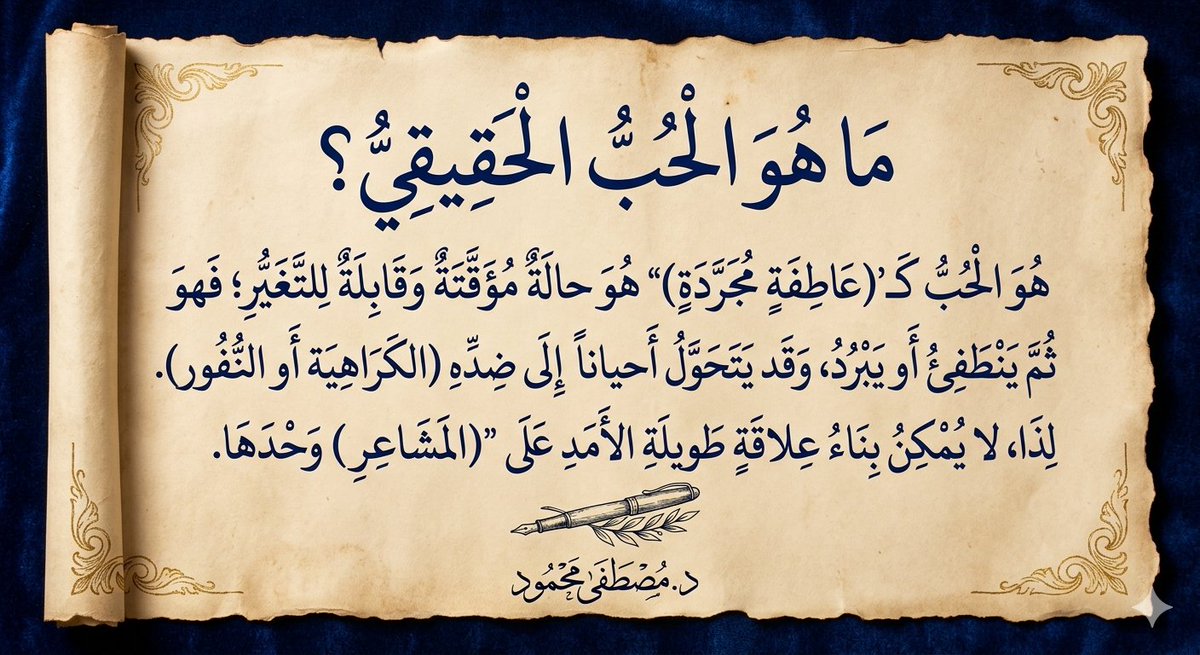 مَا هُوَ الْحُبُّ الْحَقِيقِيُّ؟
هُوَ الْحُبُّ كَـ’(عَاطِفَةٍ مُجَرَّدَةٍ)“ هُوَ حالَةٌ مُؤَقَّتَةٌ وَقَابِلَةٌ لِلتَّغَيُّرِ؛ فَهوَ
ثُمَّ يَنْطَفِئُ أَو يَبْرُدُ، وَقَد يَتَحَوَّلُ أَحياناً إِلَى ضِدِّهِ (الكَرَاهِيَة أَو النُّفُور).
لِذَا، لا يُمْكِنُ بِنَاءُ عِلاقَةٍ طَويلَةِ الأَمَدِ عَلَى ”(المَشَاعِرِ) وَحْدَهَا.
د. مُصْطَفَى مَحْمُود